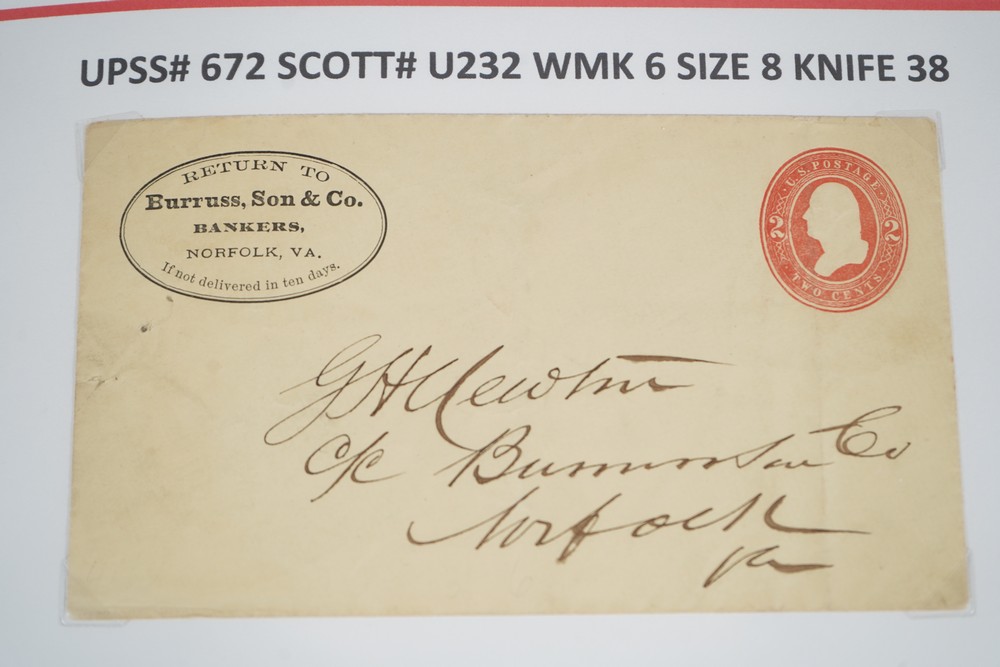 UPSS# 672 SCOTT# U232 WMK 6 SIZE 8 KNIFE 38
RETURN TO
Burruss, Son & Co.
BANKERS,
NORFOLK, VA.
If not delivered in ten days.
U.S. POSTAGE
2 2
TWO CENTS
G H Newton
c/c Burruss Son Co
Norfolk
Va